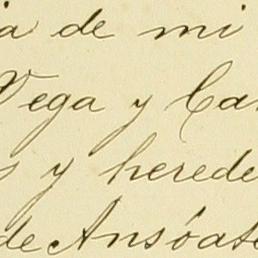 a de mi
Vega y Ca
s y herede
de Ansóate